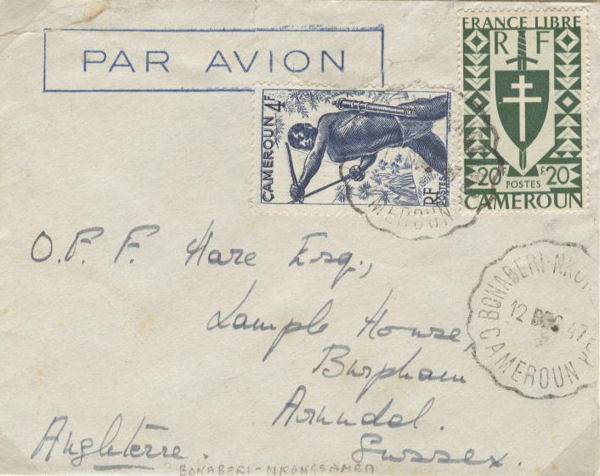 PAR AVION
FRANCE LIBRE
RF
20F. F.20
POSTES
CAMEROUN
CAMEROUN 4F
RF POSTES
MEROUN
BONABERI-NKON
12 DEC 47
CAMEROUN
O.P.F. Hare Esq.,
Lample House
Burpham
Arundel.
Sussex.
Angleterre.
BONABERI-NKONGSAMBA